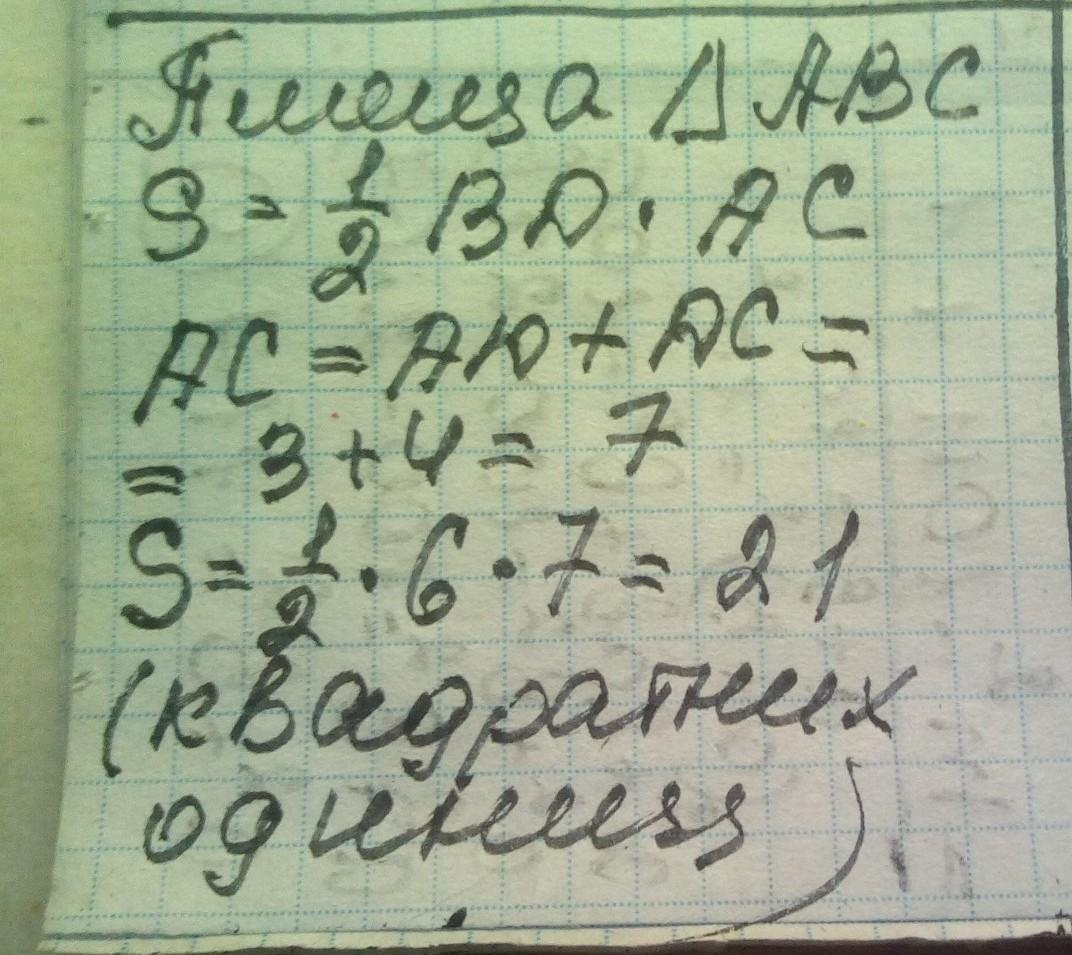 Площа △ ABC
S = 1/2 BD · AC
AC = AD + DC =
= 3 + 4 = 7
S = 1/2 · 6 · 7 = 21
(квадратних
одиниць)